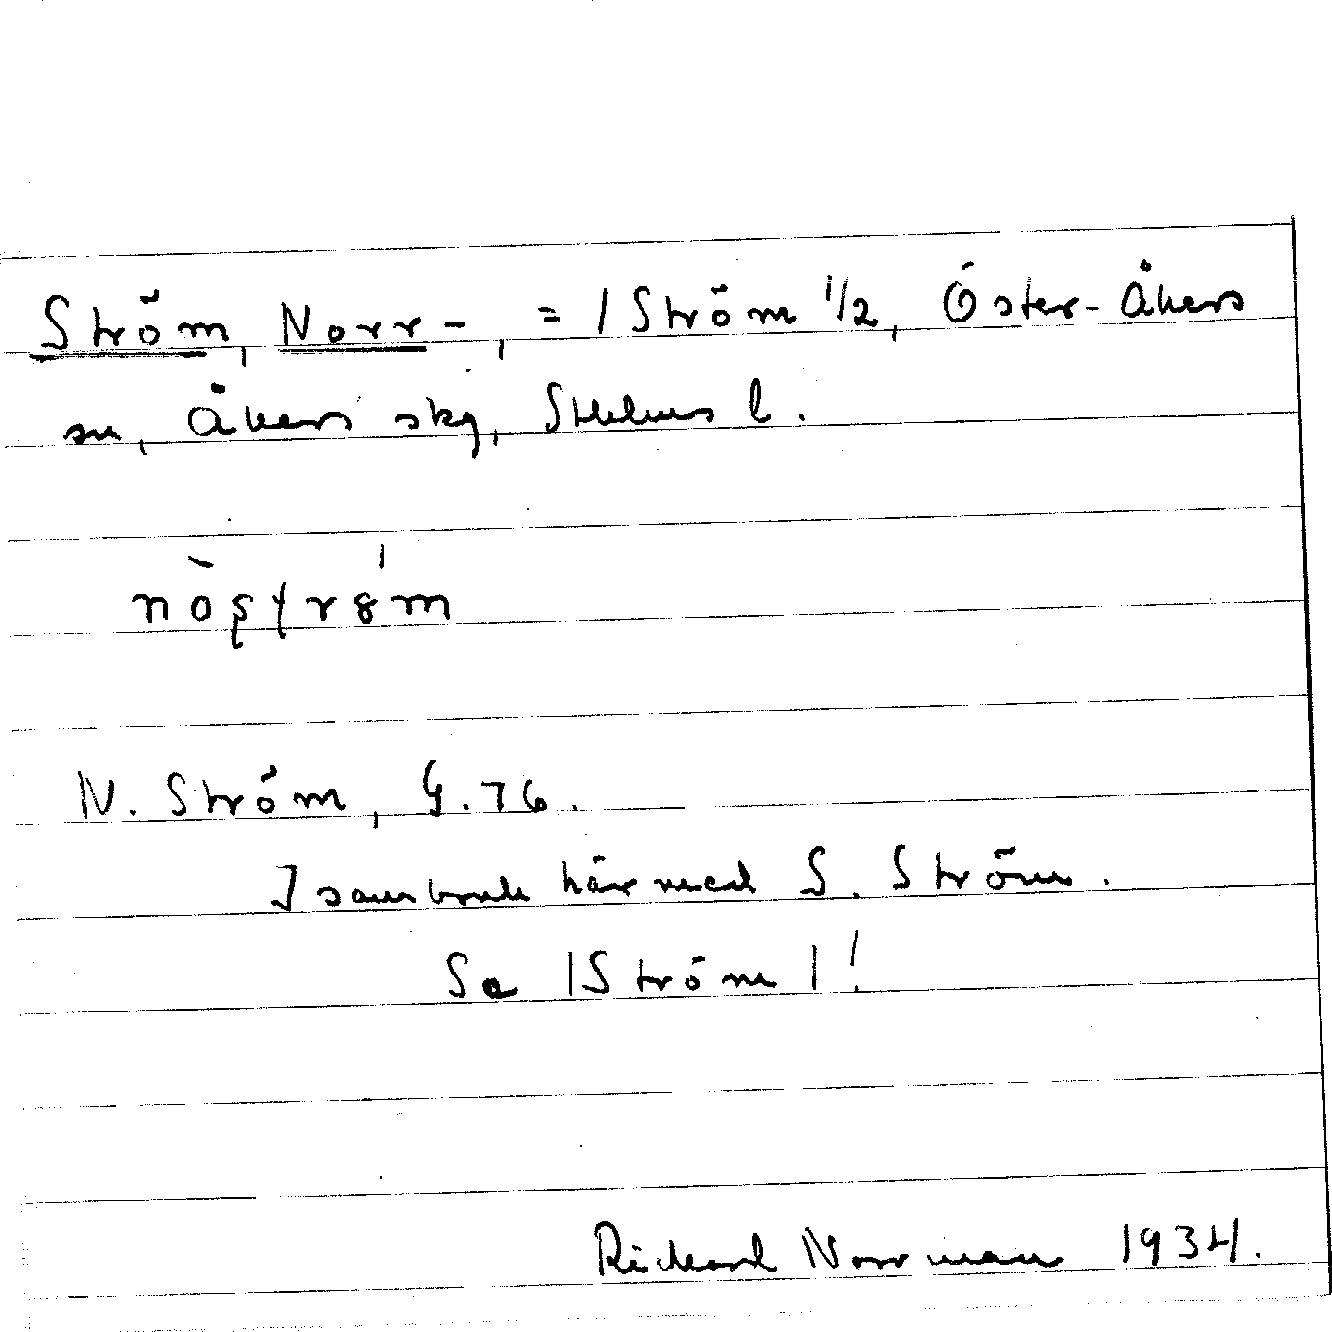 Ström, Norr-, = /Ström 1/2, Öster-Åkers
sn, Åkers skg, Sthlms l.
nòʂtrǿm
N. Ström, G.76.
I sambruk här med S. Ström.
Se |Ström|!
Rickard Norrman 1934.